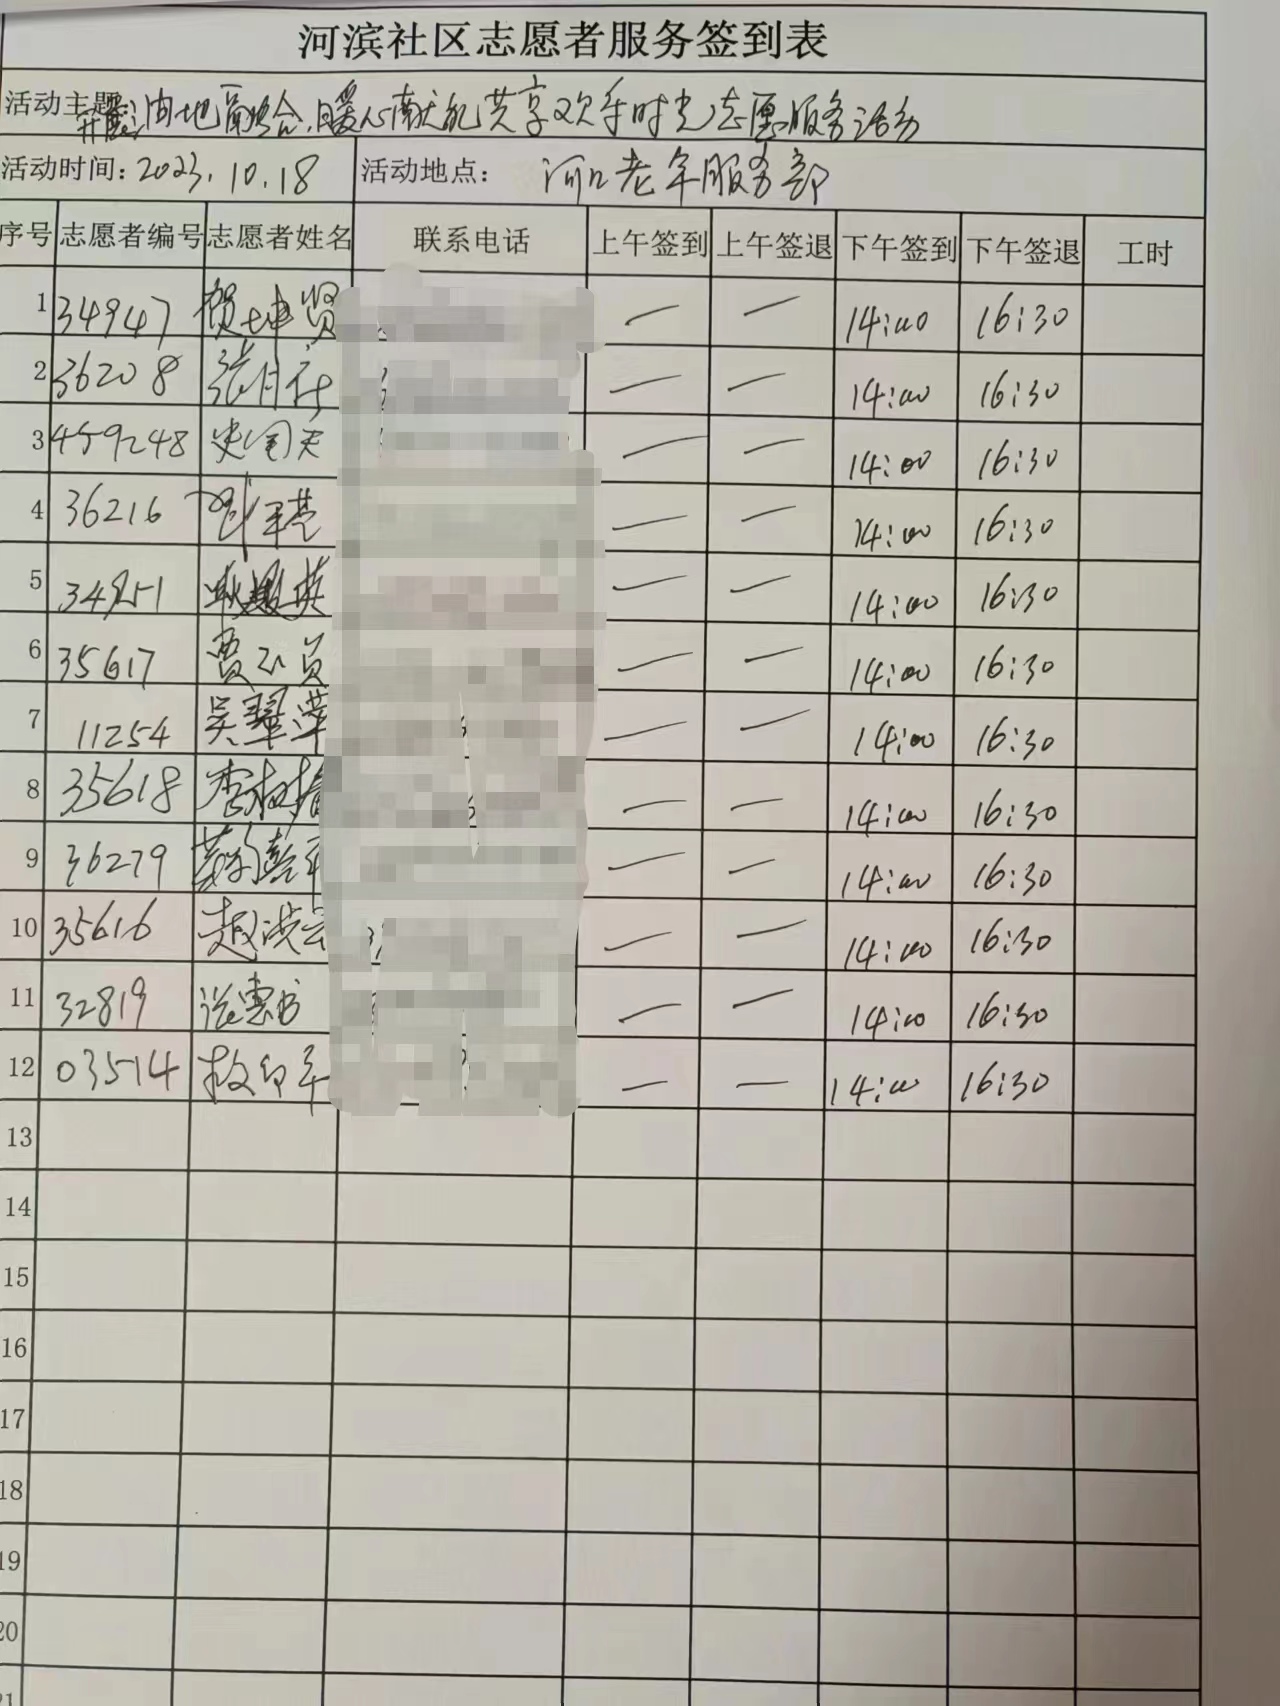 河滨社区志愿者服务签到表
活动主题 开展油地融合,暖心献礼共享欢乐时光志愿服务活动
活动时间: 2023.10.18 活动地点: 河口老年服务部
序号 志愿者编号 志愿者姓名 联系电话 上午签到 上午签退 下午签到 下午签退 工时
1 34947 贺坤贤 — — 14:00 16:30
2 36208 张月 — — 14:00 16:30
3 459248 史 — — 14:00 16:30
4 36216 刘 — — 14:00 16:30
5 — — 14:00 16:30
6 35617 贾 — — 14:00 16:30
7 11254 吴翠萍 — — 14:00 16:30
8 35618 李树 — — 14:00 16:30
9 36279 — — 14:00 16:30
10 35616 赵洪云 — — 14:00 16:30
11 32819 — — 14:00 16:30
12 03514 — — 14:00 16:30
13
14
15
16
17
18
19
20
21